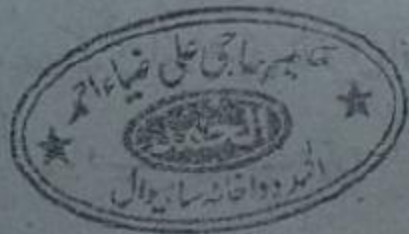 حکیم حاجی علی ضیاء احمد
الہمدرد دواخانہ ساہیوال